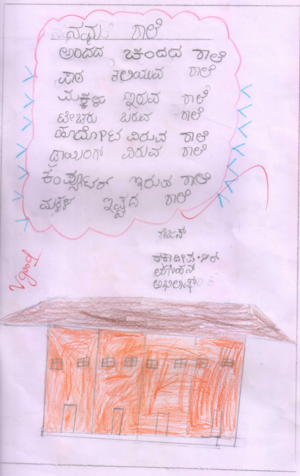 ನಮ್ಮ ಶಾಲೆ
ಅಂದದ ಚಂದದ ಶಾಲೆ
ಪಾಠ ಕಲಿಯುವ ಶಾಲೆ
ಮಕ್ಕಳು ಇರುವ ಶಾಲೆ
ಟೀಚರು ಬರುವ ಶಾಲೆ
ಹೂದೋಟ ವಿರುವ ಶಾಲೆ
ಡ್ರಾಯಿಂಗ್ ವಿರುವ ಶಾಲೆ
ಕಂಪ್ಯೂಟರ್ ಇರುವ ಶಾಲೆ
ಮಕ್ಕಳ ಇಷ್ಟದ ಶಾಲೆ
V good